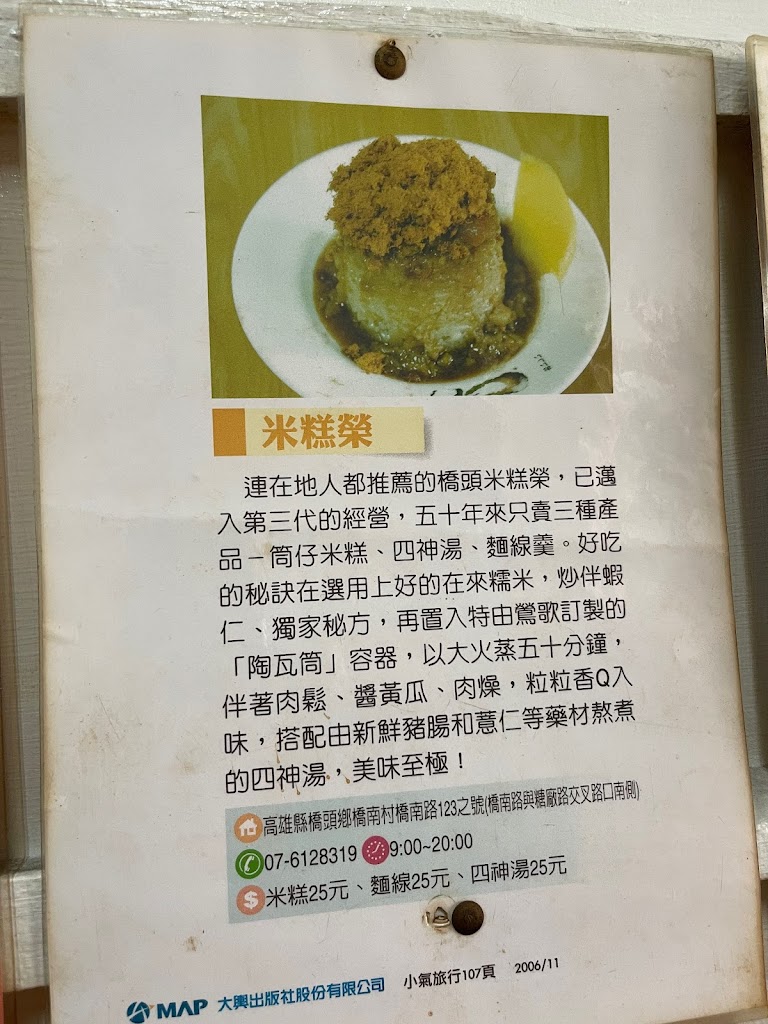 米糕榮
連在地人都推薦的橋頭米糕榮，已邁
入第三代的經營，五十年來只賣三種產
品－筒仔米糕、四神湯、麵線羹。好吃
的秘訣在選用上好的在來糯米，炒伴蝦
仁、獨家秘方，再置入特由鶯歌訂製的
「陶瓦筒」容器，以大火蒸五十分鐘，
伴著肉鬆、醬黃瓜、肉燥，粒粒香Q入
味，搭配由新鮮豬腸和薏仁等藥材熬煮
的四神湯，美味至極！
高雄縣橋頭鄉橋南村橋南路123之號(橋南路與糖廠路交叉路口南側)
07-6128319 9:00~20:00
米糕25元、麵線25元、四神湯25元
MAP 大興出版社股份有限公司 小氣旅行107頁 2006/11